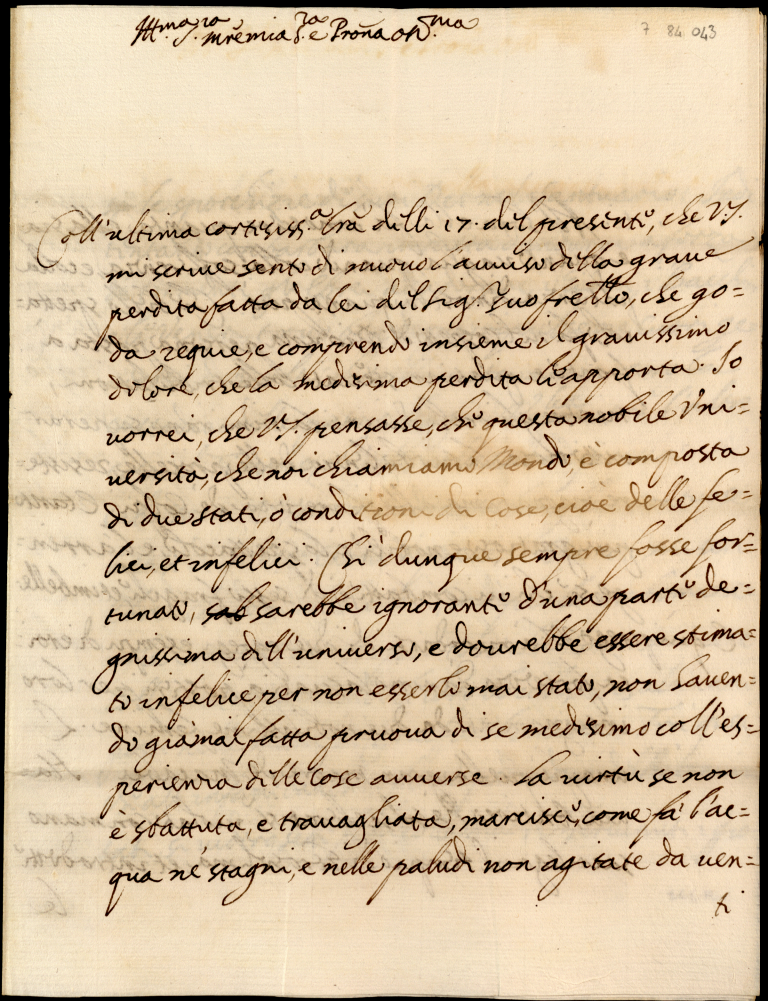 Ill.ma S.ra mrẽ mia S.ra e Prõna oss.ma
7 84 043
Coll'ultima cortesiss.a lrã delli 17. del presente, che V.S.
mi scrive sento di nuovo l'avviso della grave
perdita fatta da lei del Sig.r suo frello, che go=
da requie, e comprendo insieme il gravissimo
dolore, che la medesima perdita l'apporta. Io
vorrei, che V.S. pensasse, che questa nobile Vni=
versità, che noi chiamiamo Mondo, è composta
di due stati, ò conditioni di cose, cioè delle fe=
lici, et infelici. Chi dunque sempre fosse for=
tunato, sarebbe ignorante d'una parte de=
gnissima dell'universo, e dovrebbe essere stima=
to infelice per non esserlo mai stato, non haven=
do giamai fatta pruova di se medesimo coll'es=
perienza delle cose avverse. La virtù se non
è sbattuta, e travagliata, marcisce, come fà l'ac=
qua nè stagni, e nelle paludi non agitate da ven=
ti